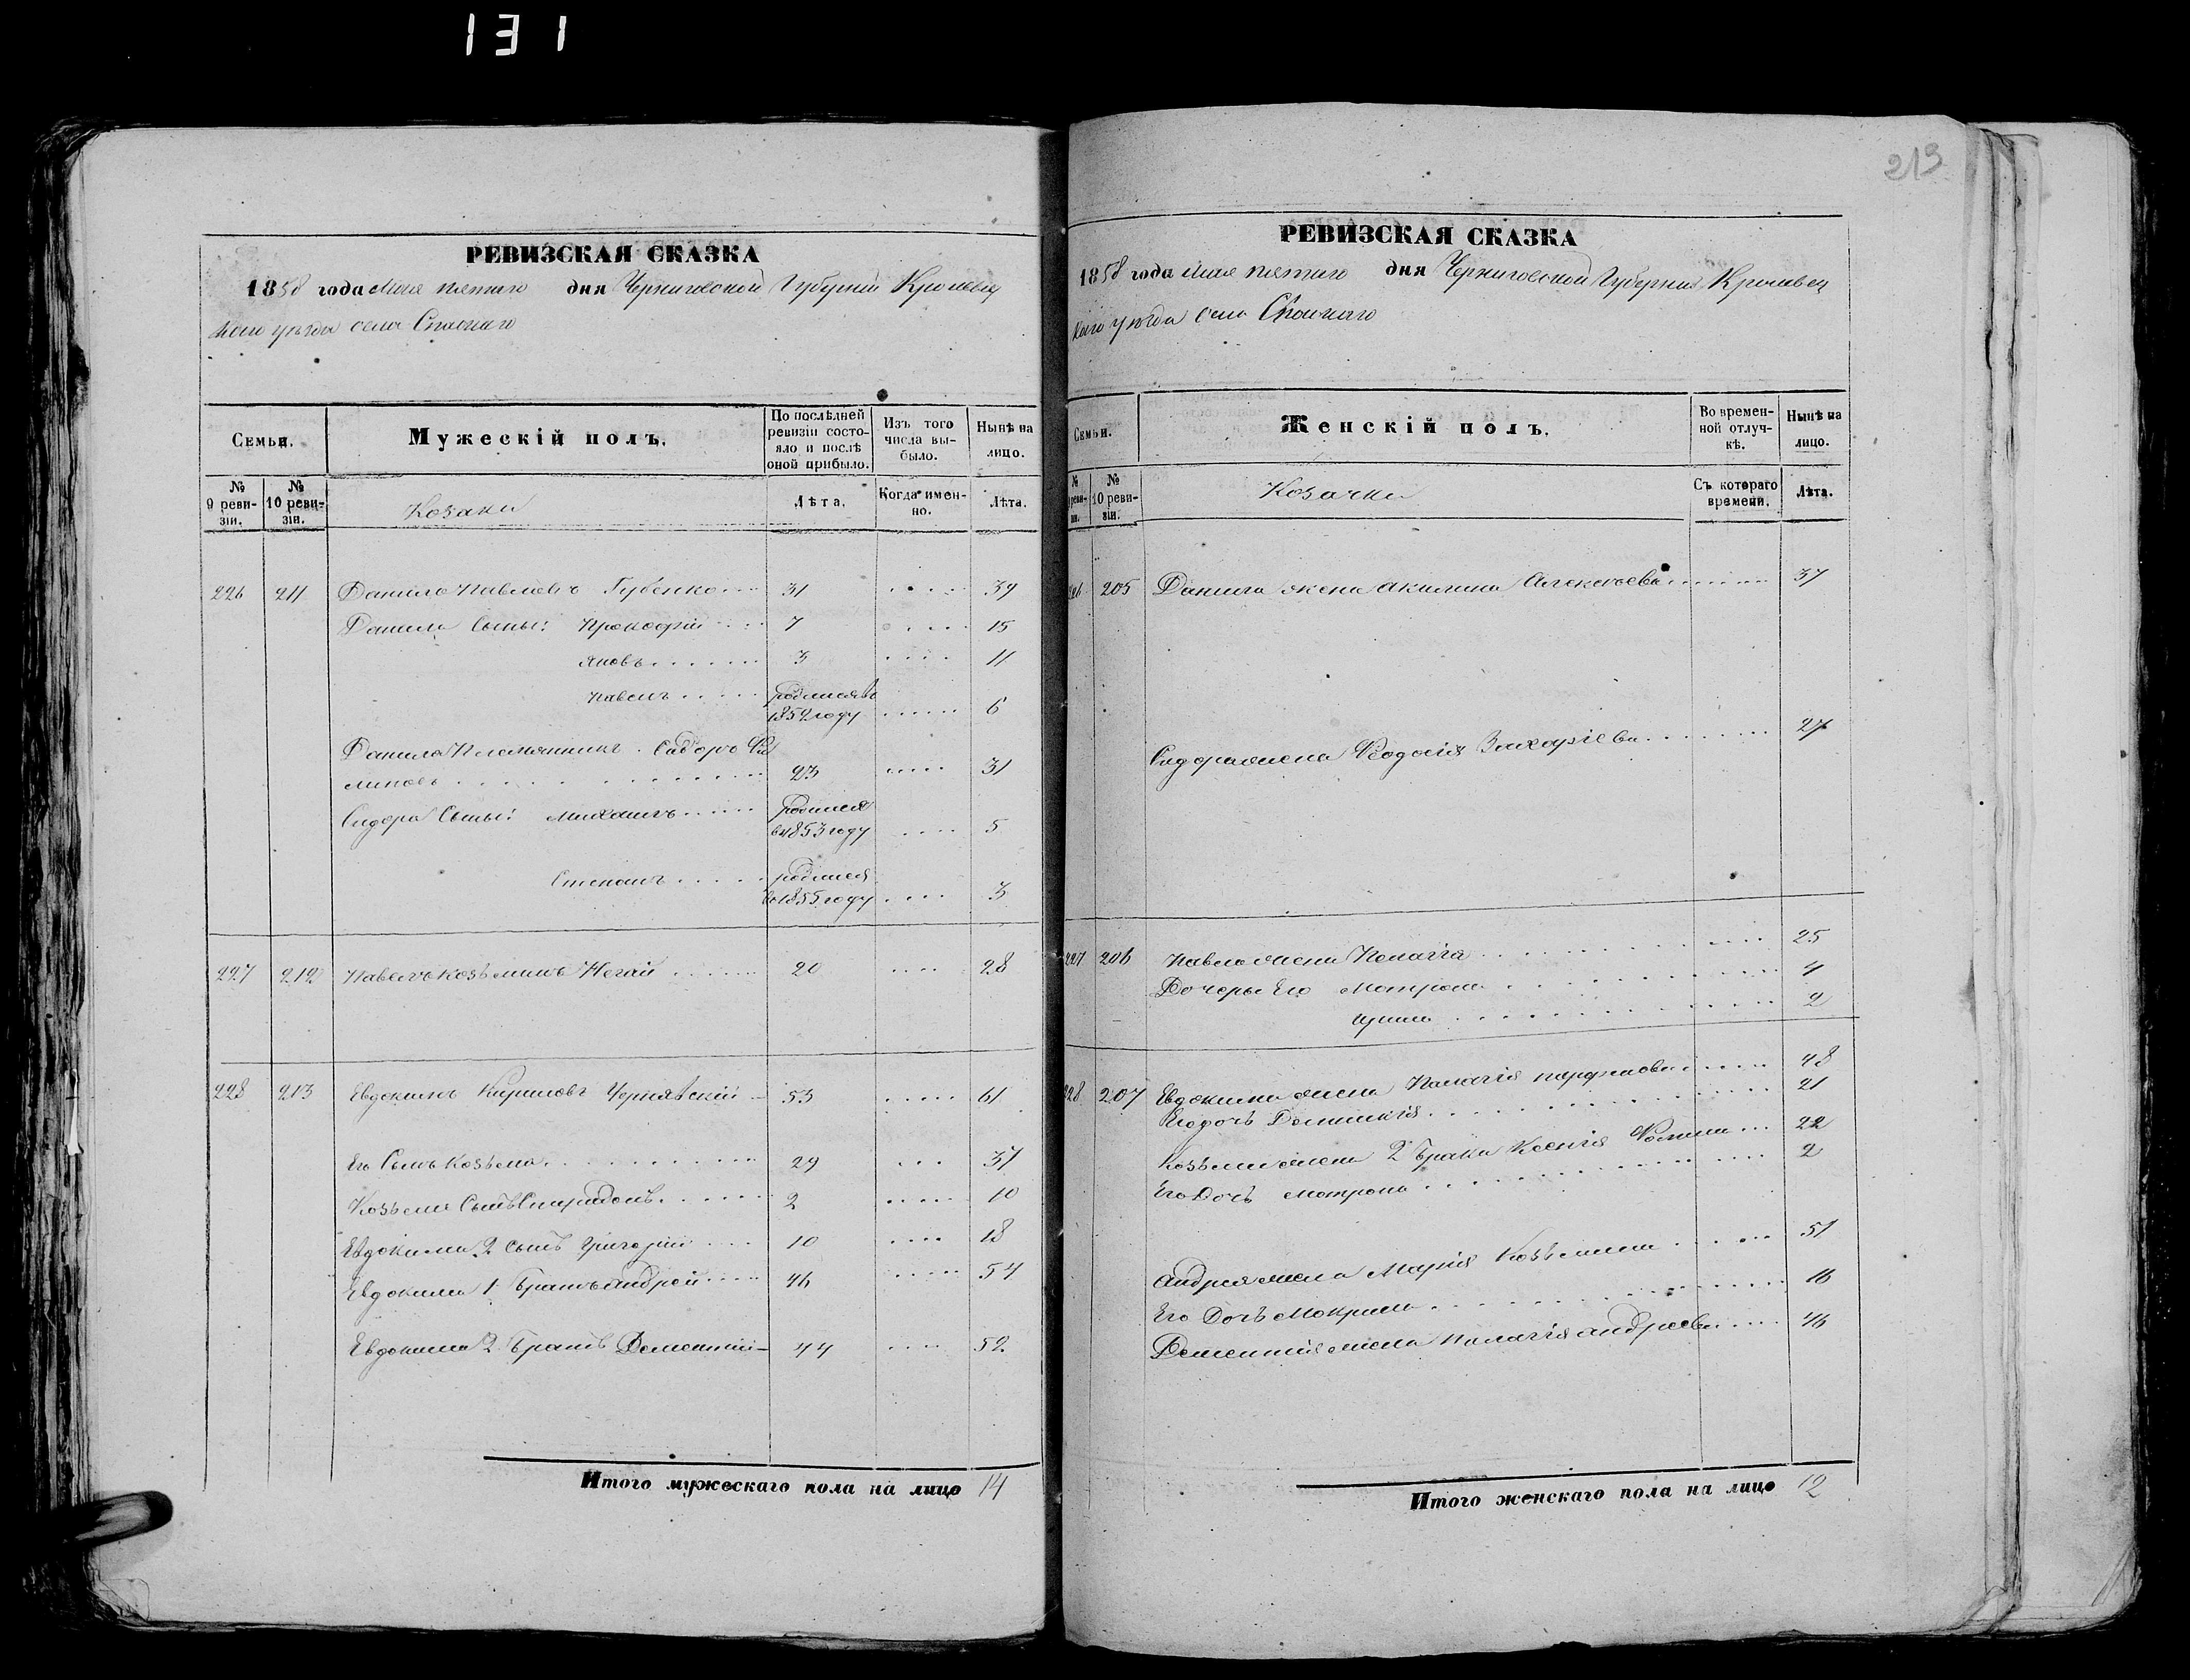 131
213
РЕВИЗСКАЯ СКАЗКА
1858 года Мая пятаго дня Черниговской Губерніи Кролевец
каго уезда села Спаскаго
Семьи.
Мужескій полъ.
По послѣдней ревизіи состояло и послѣ оной прибыло.
Изъ того числа выбыло.
Нынѣ на лицо.
№ 9 ревизіи.
№ 10 ревизіи.
Козаки
Лѣта.
Когда именно.
Лѣта.
226 211 Данило Павловъ Губенко 31 39
Данила Сыны: Прокофій 7 15
Яковъ 3 11
Павелъ родился въ
1852 году 6
Данила Племянникъ Сидоръ Фи
липовъ 23 31
Сидора Сыны: Михаилъ родился
въ 1853 году 5
Степанъ родился
въ 1855 году 3
227 212 Павелъ Козьминъ Негай 20 28
228 213 Евдокимъ Кириловъ Чернявскій 53 61
Его Сынъ Козьма 29 37
Козьмы Сынъ Спиридонъ 2 10
Евдокима 2 Сынъ Григорій 10 18
Евдокима 1 Братъ Андрей 46 54
Евдокима 2 Братъ Дементій 44 52
Итого мужескаго пола на лицо 14
РЕВИЗСКАЯ СКАЗКА
1858 года Мая пятаго дня Черниговской Губерніи Кролевец
каго уезда села Спаскаго
Семьи.
Женскій полъ.
Во временной отлучкѣ.
Нынѣ на лицо.
№ 9 ревизіи.
№ 10 ревизіи.
Козачки
Съ котораго времени.
Лѣта.
226 205 Данила жена Акилина Алексеева 37
Сидора жена Феодосія Захаріева 27
227 206 Павла жена Пелагія 25
Дочеры Его Матрона 4
Ирина 2
228 207 Евдокима жена Пелагія Парфиова 48
Его дочь Домникія 21
Козьмы жена 2 брака Ксенія Фомина 22
Его Дочь Матрона 2
Андрея жена Марія Козьмина 51
Его Дочь Мокрина 16
Дементія жена Палагія Андреева 46
Итого женскаго пола на лицо 12